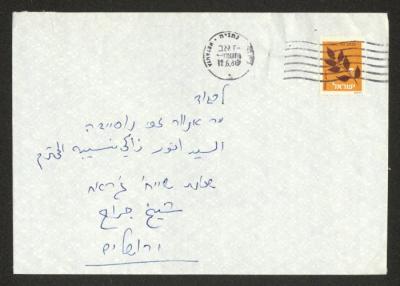 נתניה
ישראל
לכבוד
מר אנואר זכי נוסייבה
السيد انور زكي نسيبه المحترم
שכונת שייח' ג'ראח
شيخ جراح
ירושלים